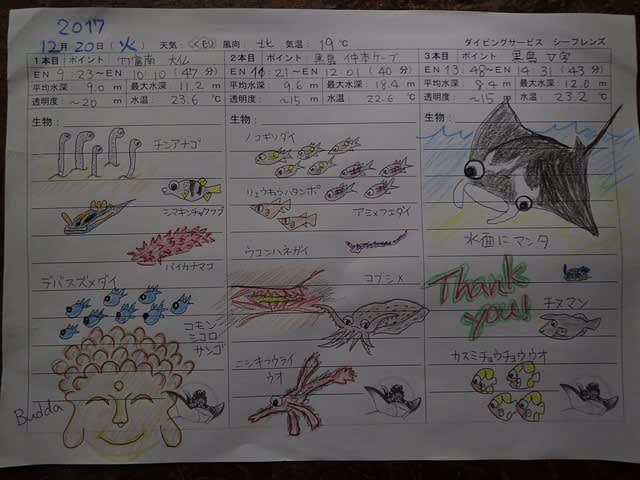 2017
12月20日(火) 天気: くもり 風向: 北 気温: 19℃ ダイビングサービス シーフレンズ
1本目 ポイント 竹富南 大仏
EN 9:23~EN 10:10 (47分)
平均水深: 9.0 m 最大水深: 11.2 m
透明度: ~20 m 水温: 23.6 ℃
生物:
チンアナゴ
シマキンチャクフグ
バイカナマコ
デバスズメダイ
コモン
シコロ
サンゴ
Budda
2本目 ポイント 黒島 仲本ケーブ
EN 11:21~EN 12:01 (40分)
平均水深: 9.6 m 最大水深: 18.4 m
透明度: ~15 m 水温: 22.6 ℃
生物:
ノコギリダイ
リュウキュウハタンポ
アミメフエダイ
ウコンハネガイ
コブシメ
ニシキフウライ
ウオ
3本目 ポイント 黒島
EN 13:48~EN 14:31 (43分)
平均水深: 8.4 m 最大水深: 12.0 m
透明度: ~15 m 水温: 23.2 ℃
生物:
水面にマンタ
Thank
you!
カスミチョウチョウウオ